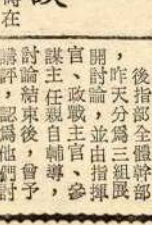 後指部全體幹部
，昨天分爲三組展
開討論，並由指揮
官、政戰主官、參
謀主任親自輔導，
討論結束後，曾予
講評，認爲他們討
時在